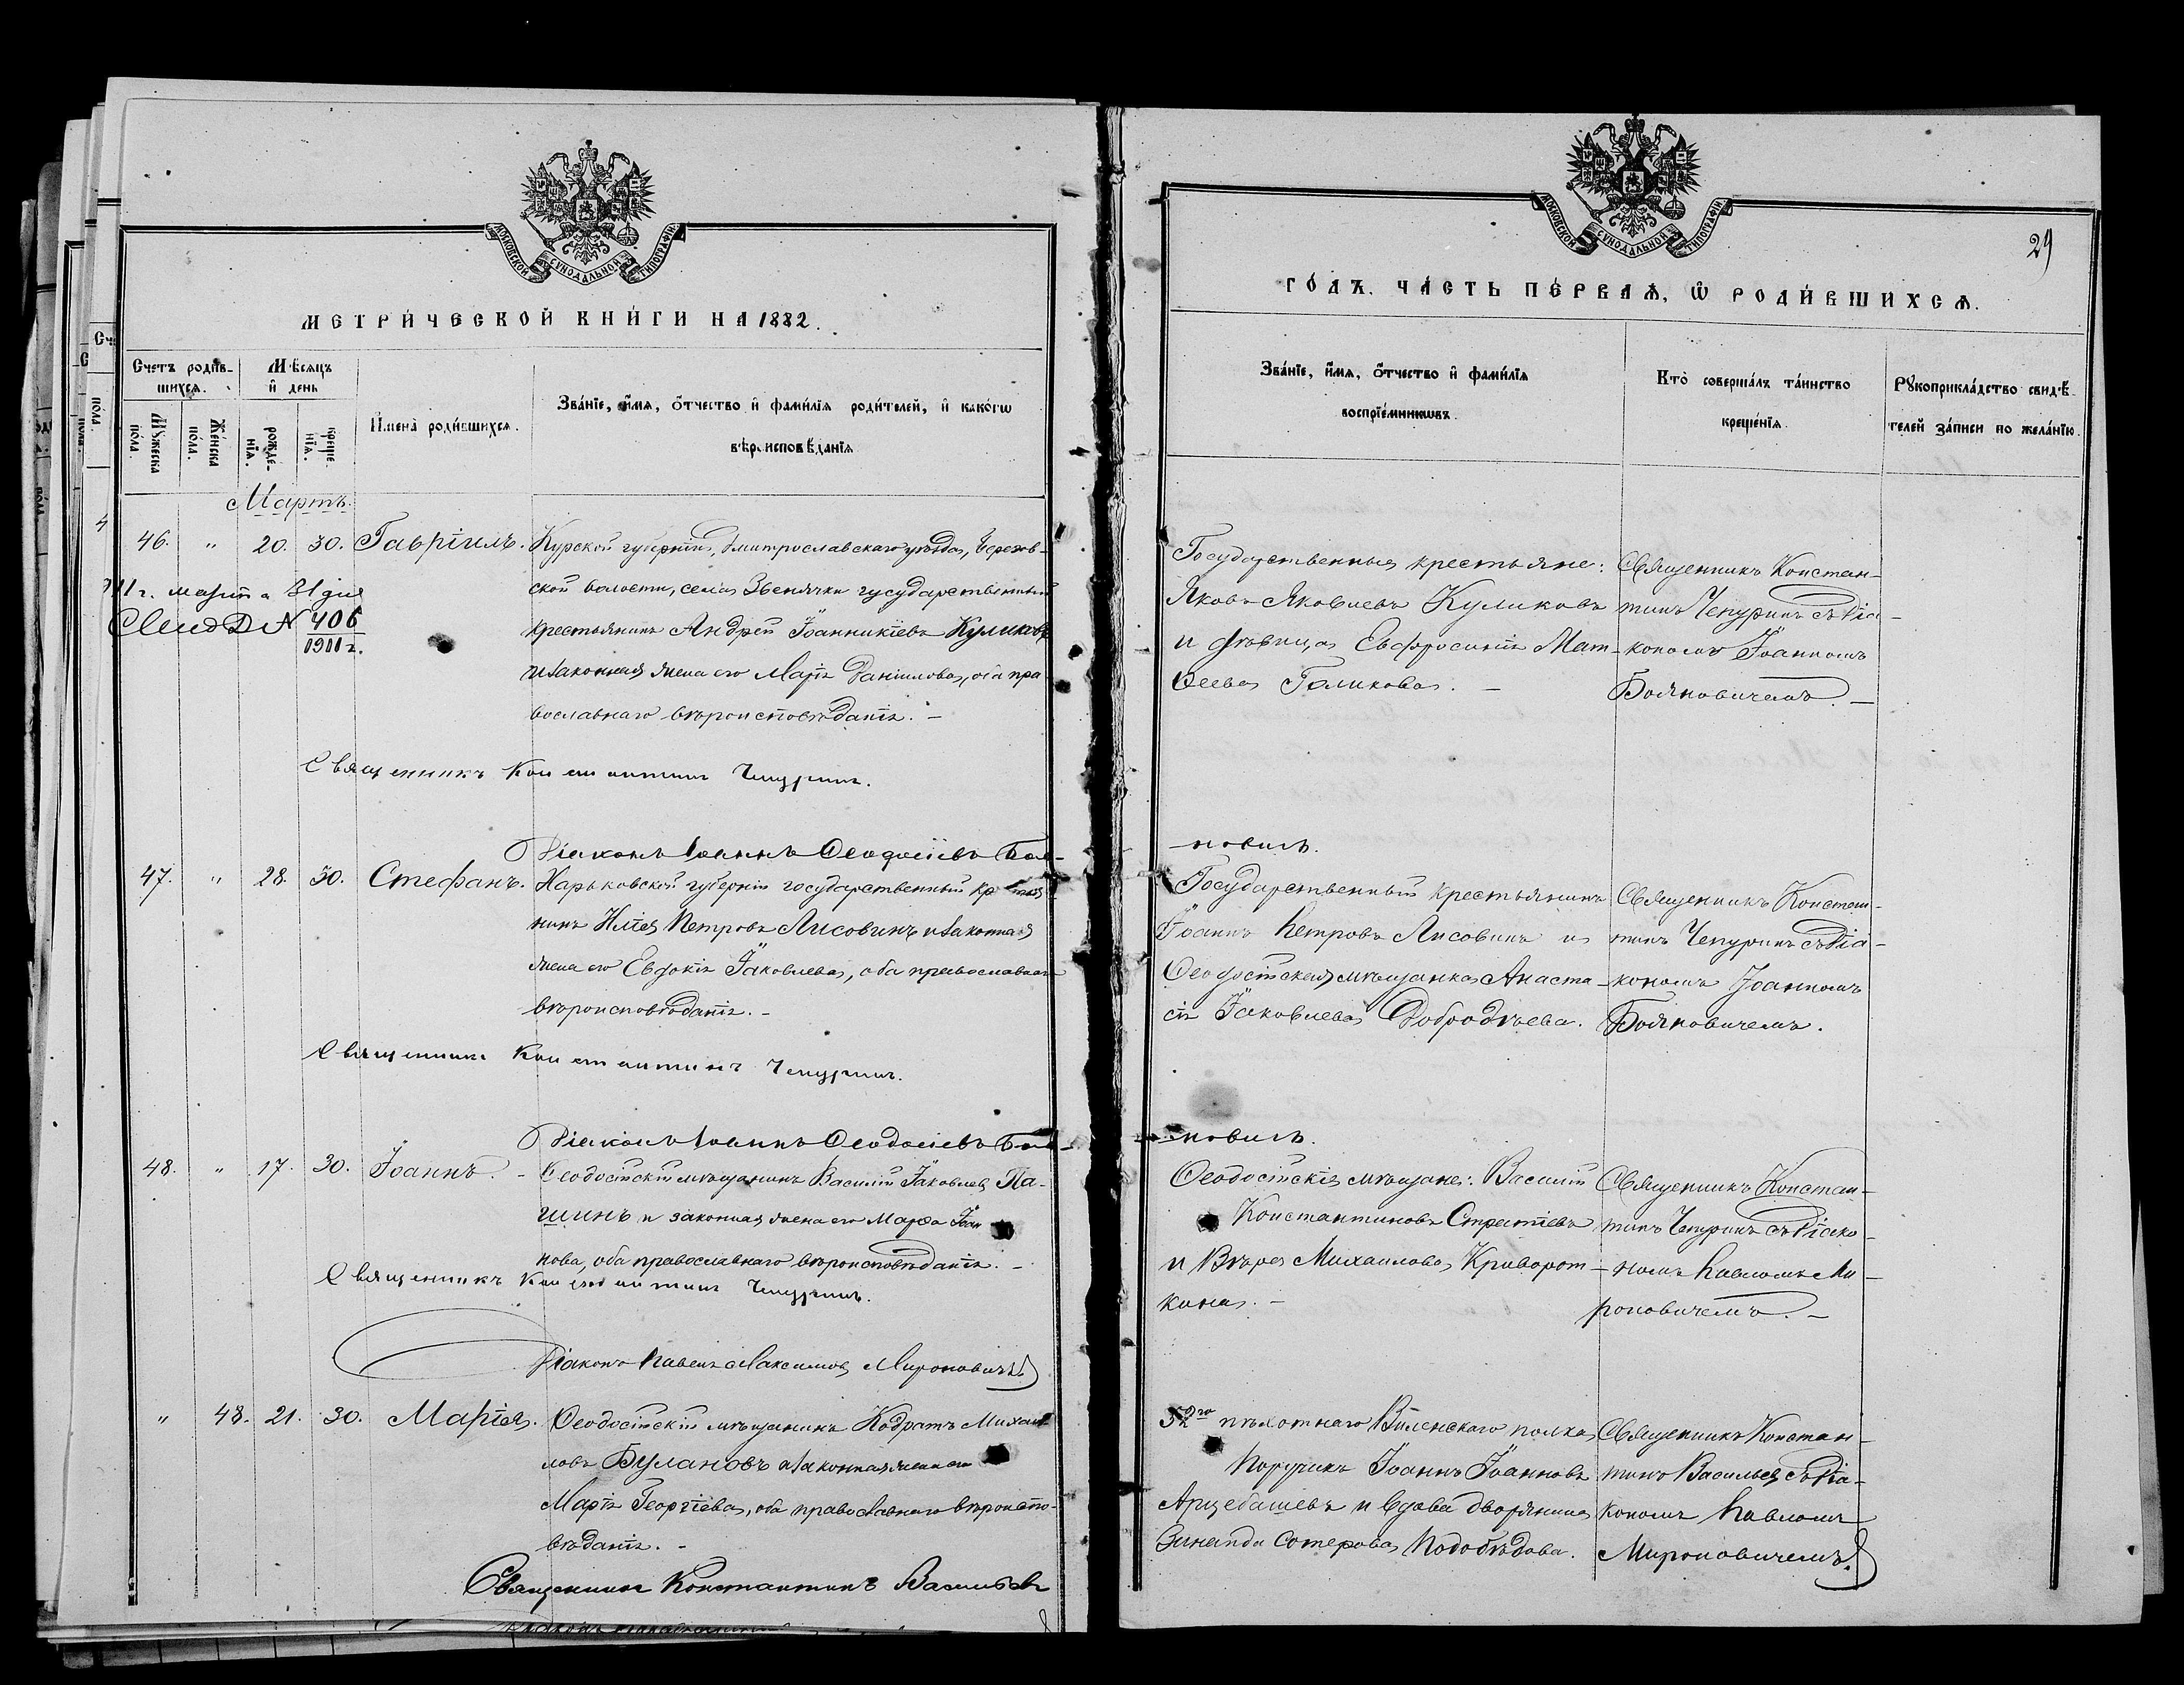 МОСКОВСКОЙ СѴНОДАЛЬНОЙ ТИПОГРАФІИ
МЕТРИ́ЧЕСКОЙ КНИ́ГИ НА 1882.
Счетъ роди́в-
шихсѧ.
Мѣсѧцъ
и҆ день
Мꙋ́жеска
по́ла.
Же́нска
по́ла.
рожде-
нїѧ.
креще
нїѧ.
И҆мена̀ роди́вшихсѧ.
Зва́нїе, и҆́мѧ, ѻ҆́тчество и҆ фами́лїѧ роди́телей, и҆ како́гѡ
вѣроисповѣ́данїѧ
Мартъ.
46. " 20. 30. Гавріилъ. Курской губерніи, Дмитрославскаго уѣзда, Березов-
ской волости, села Звенячки государственный
крестьянинъ Андрей Іоанникіевъ Куликовъ
и законная жена его Марія Даніилова, оба пра
вославнаго вѣроисповѣданія. –
911 г. марта 31 дня
Свид № 406
1911 г.
Священникъ Константинъ Чепуринъ.
Діаконъ Іоаннъ Ѳеодосіевъ Боя-
47. " 28. 30. Стефанъ. Харьковской губерніи государственный кр
нинъ Илія Петровъ Лисовинъ и законная
жена его Евдокія Іаковлева, оба православнаго
вѣроисповѣданія. –
Священникъ Константинъ Чепуринъ.
Діаконъ Іоаннъ Ѳеодосіевъ Боя-
48. " 17. 30. Іоаннъ. – Ѳеодосійскій мѣщанинъ Василій Іаковлевъ Па-
шинъ и законная жена его Марѳа Іоан
нова, оба православнаго вѣроисповѣданія. –
Священникъ Константинъ Чепуринъ.
Діаконъ Павелъ Максимовъ Мироновичъ
" 48. 21. 30. Марія. Ѳеодосійскій мѣщанинъ Кодратъ Михаи
ловъ Булановъ и законная жена его
Марія Георгіева, оба православнаго вѣроиспо-
вѣданія. –
Священникъ Константинъ Васильевъ
МОСКОВСКОЙ СѴНОДАЛЬНОЙ ТИПОГРАФІИ
29
ГО́ДЪ. ЧА́СТЬ ПЕ́РВАѦ, Ѡ҆ РОДИ́ВШИХСѦ.
Зва́нїе, и҆́мѧ, ѻ҆́тчество и҆ фами́лїѧ
воспрїе́мникѡвъ.
Кто̀ соверша́лъ та́инство
креще́нїѧ.
Рꙋкоприкла́дство свидѣ́-
телей за́писи по жела́нїю.
Государственныя крестьяне:
Яковъ Яковлевъ Куликовъ
и дѣвица Евфросинія Мат-
ѳеева Голикова. –
Священникъ Констан-
тинъ Чепуринъ съ діа-
кономъ Іоанномъ
Бояновичемъ. –
новичъ.
Государственный крестьянинъ
Іоаннъ Петровъ Лисовинъ и
Ѳеодосійская мѣщанка Анаста-
сія Іаковлева Добродѣева.
Священникъ Констан-
тинъ Чепуринъ съ діа-
кономъ Іоанномъ
Бояновичемъ.
новичъ.
Ѳеодосійскія мѣщане: Василій
Константиновъ Стратіевъ
и Вѣра Михаилова Криворот-
кина. –
Священникъ Констан-
тинъ Чепуринъ съ діако-
номъ Павломъ Ми-
роновичемъ. –
52го пѣхотнаго Виленскаго полка
Поручикъ Іоаннъ Іоанновъ
Арцебашевъ и вдова дворянина
Зинаида Сотерова Подобѣдова.
Священникъ Констан-
тинъ Васильевъ съ діа-
кономъ Павломъ
Мироновичемъ.